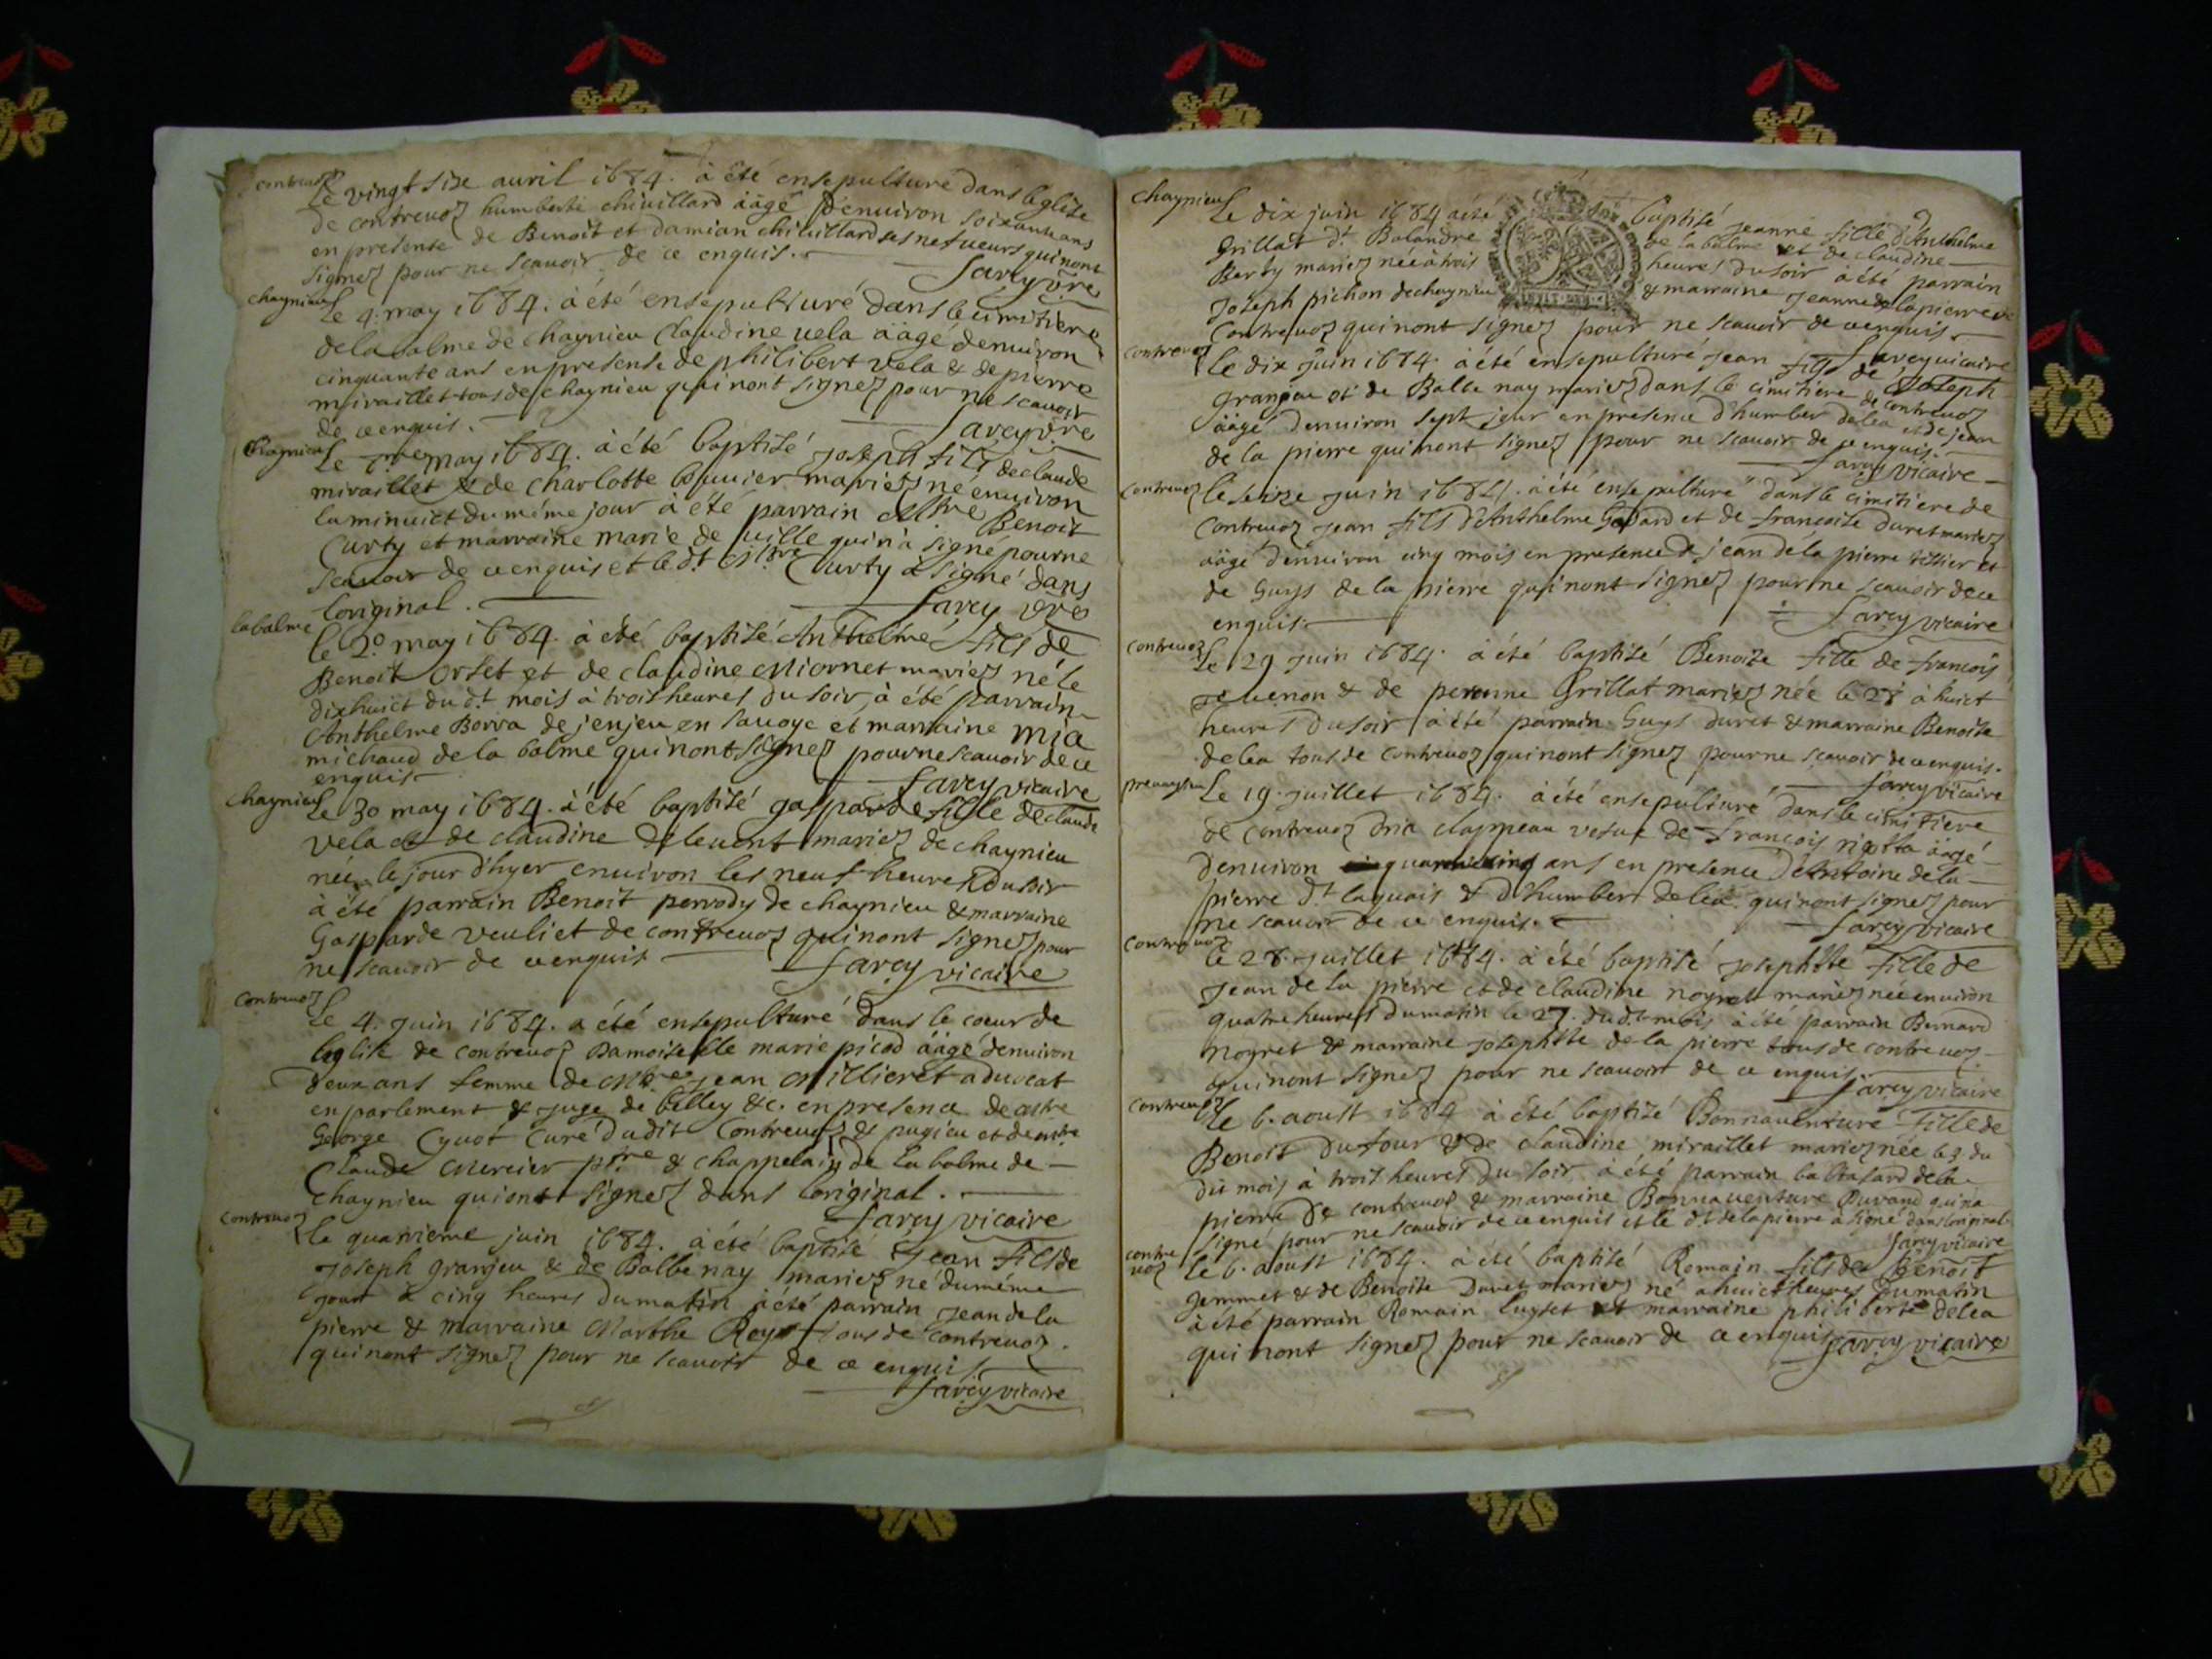 contrevoz
Le vingt sixe auril 1684. à été ensepulturé dans leglize
de contrevoz humberte chivillard aàgé denuiron soixante ans
en presense de Benoit et damian chivillard ses nefueurs qui nont
signez pour ne scauoir de ce enquis.
farcy vre
chaynieu
Le 4. may 1684. à été ensepulturé dans le cimitiere
de la balme de chaynieu Claudine vela aàgé denuiron
cinquante ans en presense de philibert vela & de pierre
miraillet tous de chaynieu qui nont signez pour ne scauoir
de ce enquis.
farcy vre
Chaynieu
Le may 1684. à été baptisé joseph fils de claude
miraillet & de charlotte mariez né enuiron
la minuict du même jour à été parrain Benoit
Curty et marraine marie de qui n'a signé pour ne
scauoir de ce enquis et le dt Curty à signé dans
loriginal.
farcy vre
la balme
le 20 may 1684. à été baptisé Anthelme fils de
Benoit orset et de claudine Miornet mariez né le
dixhuict du dt mois à trois heures du soir, à été parrain
Anthelme Borra de jenjeu en sauoye et marraine mia
michaud de la balme qui nont signez pour ne scauoir de ce
enquis
farcy vicaire
chaynieu
Le 30 may 1684. à été baptisé gasparde fille de claude
vela et de claudine deleuent mariez de chaynieu
née le jour dhyer enuiron les neuf heures du soir
à été parrain Benoit perrody de chaynieu & marraine
Gasparde veuliet de contrevoz qui nont signez pour
ne scauoir de ce enquis
farcy vicaire
Contrevoz
Le 4. juin 1684. a été ensepulturé dans le coeur de
leglise de contrevoz Damoiselle marie picod aàgé denuiron
deux ans femme de jean Millieret aduocat
en parlement & juge de belley &c. en presence de
George Cyuot Curé dudit Contrevoz & pugieu et de
Claude Mercier ptre & chappelain de la balme de
chaynieu qui ont signez dans loriginal.
farcy vicaire
Contrevoz
le quatrieme juin 1684. à été baptisé Jean fils de
joseph granjeu & de Balbe nay mariez né du méme
jour à cinq heures du matin à été parrain jean de la
pierre & marraine Marthe Rey tous de Contrevoz.
qui nont signez pour ne scauoir de ce enquis
farcy vicaire
Chaynieu
Le dix juin 1684 a été baptisé jeanne fille d'Anthelme
Grillat dt Balandre de la balme et de claudine
Berty mariez née à trois heures du soir à été parrain
Joseph pichon de chaynieu & marraine jeanne de la pierre de
Contrevoz qui nont signez pour ne scauoir de ce enquis.
farcy vicaire
Contrevoz
Le dix juin 1684. à été ensepulturé jean fils de Joseph
granjeu et de Balbe nay mariez dans le cimitiere de contrevoz
aàgé denuiron sept jour en presence d'humber delea et de jean
de la pierre qui nont signez pour ne scauoir de ce enquis.
farcy vicaire
Contrevoz
le seize juin 1684. à été ensepulturé dans le cimitiere de
Contrevoz jean fils d'Anthelme Godard et de francoise duret mariez
aàgé denuiron cinq mois en presence de jean dela pierre tissier et
de Guys de la pierre qui nont signez pour ne scauoir de ce
enquis.
farcy vicaire
Contrevoz
Le 29 juin 1684. à été baptisé Benoite fille de francois
& de peronne Grillat mariez née le 28 à huict
heures du soir à été parrain Guys duret & marraine Benoite
delea tous de contrevoz qui nont signez pour ne scauoir de ce enquis.
farcy vicaire
Le 19. juillet 1684. à été ensepulturé dans le cimitiere
de contrevoz clappeau vesue de francois aàgé
denuiron ans en presence de Antoine de la
pierre dt laquais & d'humber delea qui nont signez pour
ne scauoir de ce enquis.
farcy vicaire
Contrevoz
Le 28. juillet 1684. à été baptisé josephte fille de
jean de la pierre et de claudine noyret mariez née enuiron
quatre heures du matin le 27. du dt mois à été parrain Bernard
noyret & marraine josephte de la pierre tous de contrevoz
qui nont signez pour ne scauoir de ce enquis.
farcy vicaire
Contrevoz
le 6. aoust 1684 à été baptizé Bonnauenture fille de
Benoit dufour & de claudine miraillet mariez née le 3. du
du mois à trois heures du soir, à été parrain baltasard de la
pierre de contrevoz & marraine Bonnauenture Durand qui na
signé pour ne scauoir de ce enquis et le dt de la pierre à signé dans loriginal.
farcy vicaire
contre
voz
Le 6. aoust 1684. à été baptisé Romain fils de Benoit
jemmet & de Benoite Duret mariez né a huict heures du matin
à été parrain Romain luyset et marraine philiberte delea
qui nont signez pour ne scauoir de ce enquis
farcy vicaire